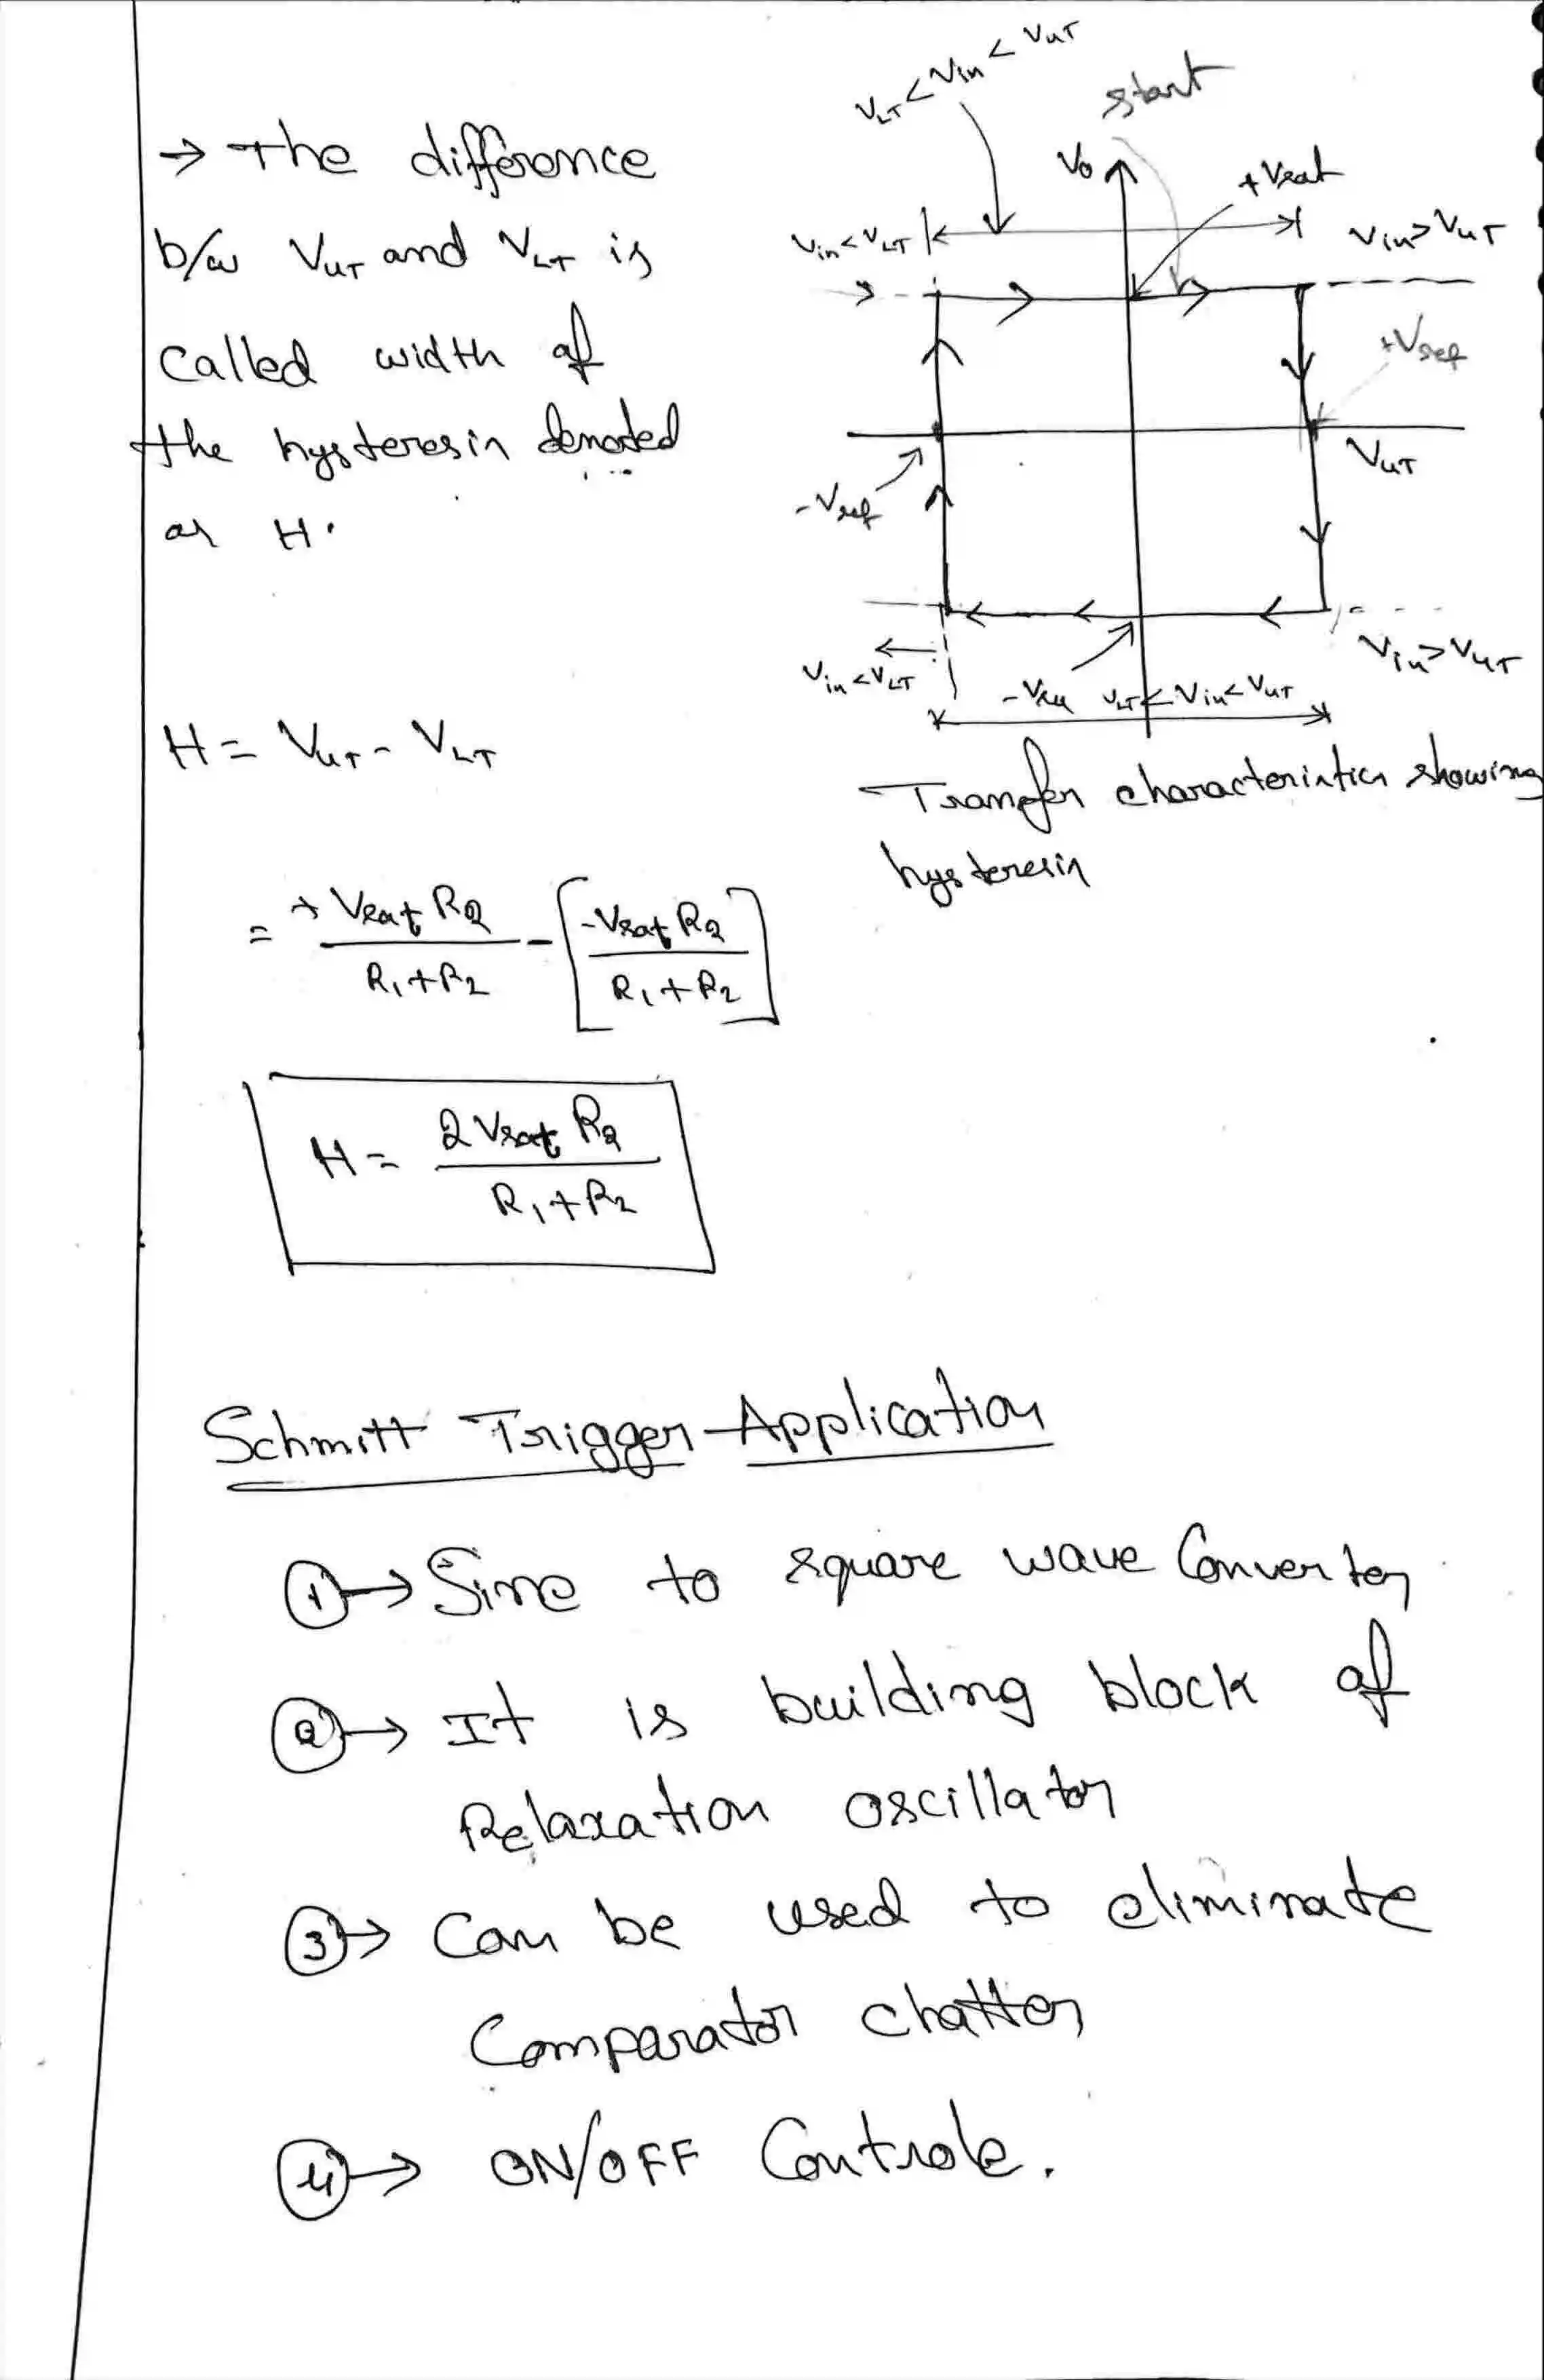 → The difference
b/w VUT and VLT is
Called width of
the hysteresis denoted
as H.
VLT < Vin < VUT
start
Vo
+Vsat
Vin < VLT
Vin > VUT
+Vref
VUT
-Vref
Vin > VUT
Vin < VLT
VLT < Vin < VUT
Transfer characteristics showing
hysteresis
H = VUT - VLT
= + Vsat R2 / R1+R2 - [ -Vsat R2 / R1+R2 ]
H = 2 Vsat R2 / R1+R2
Schmitt Trigger Application
① → Sine to square wave Converter
② → It is building block of
Relaxation oscillator
③ → Can be used to eliminate
Comparator chatter
④ → ON/OFF Controle.